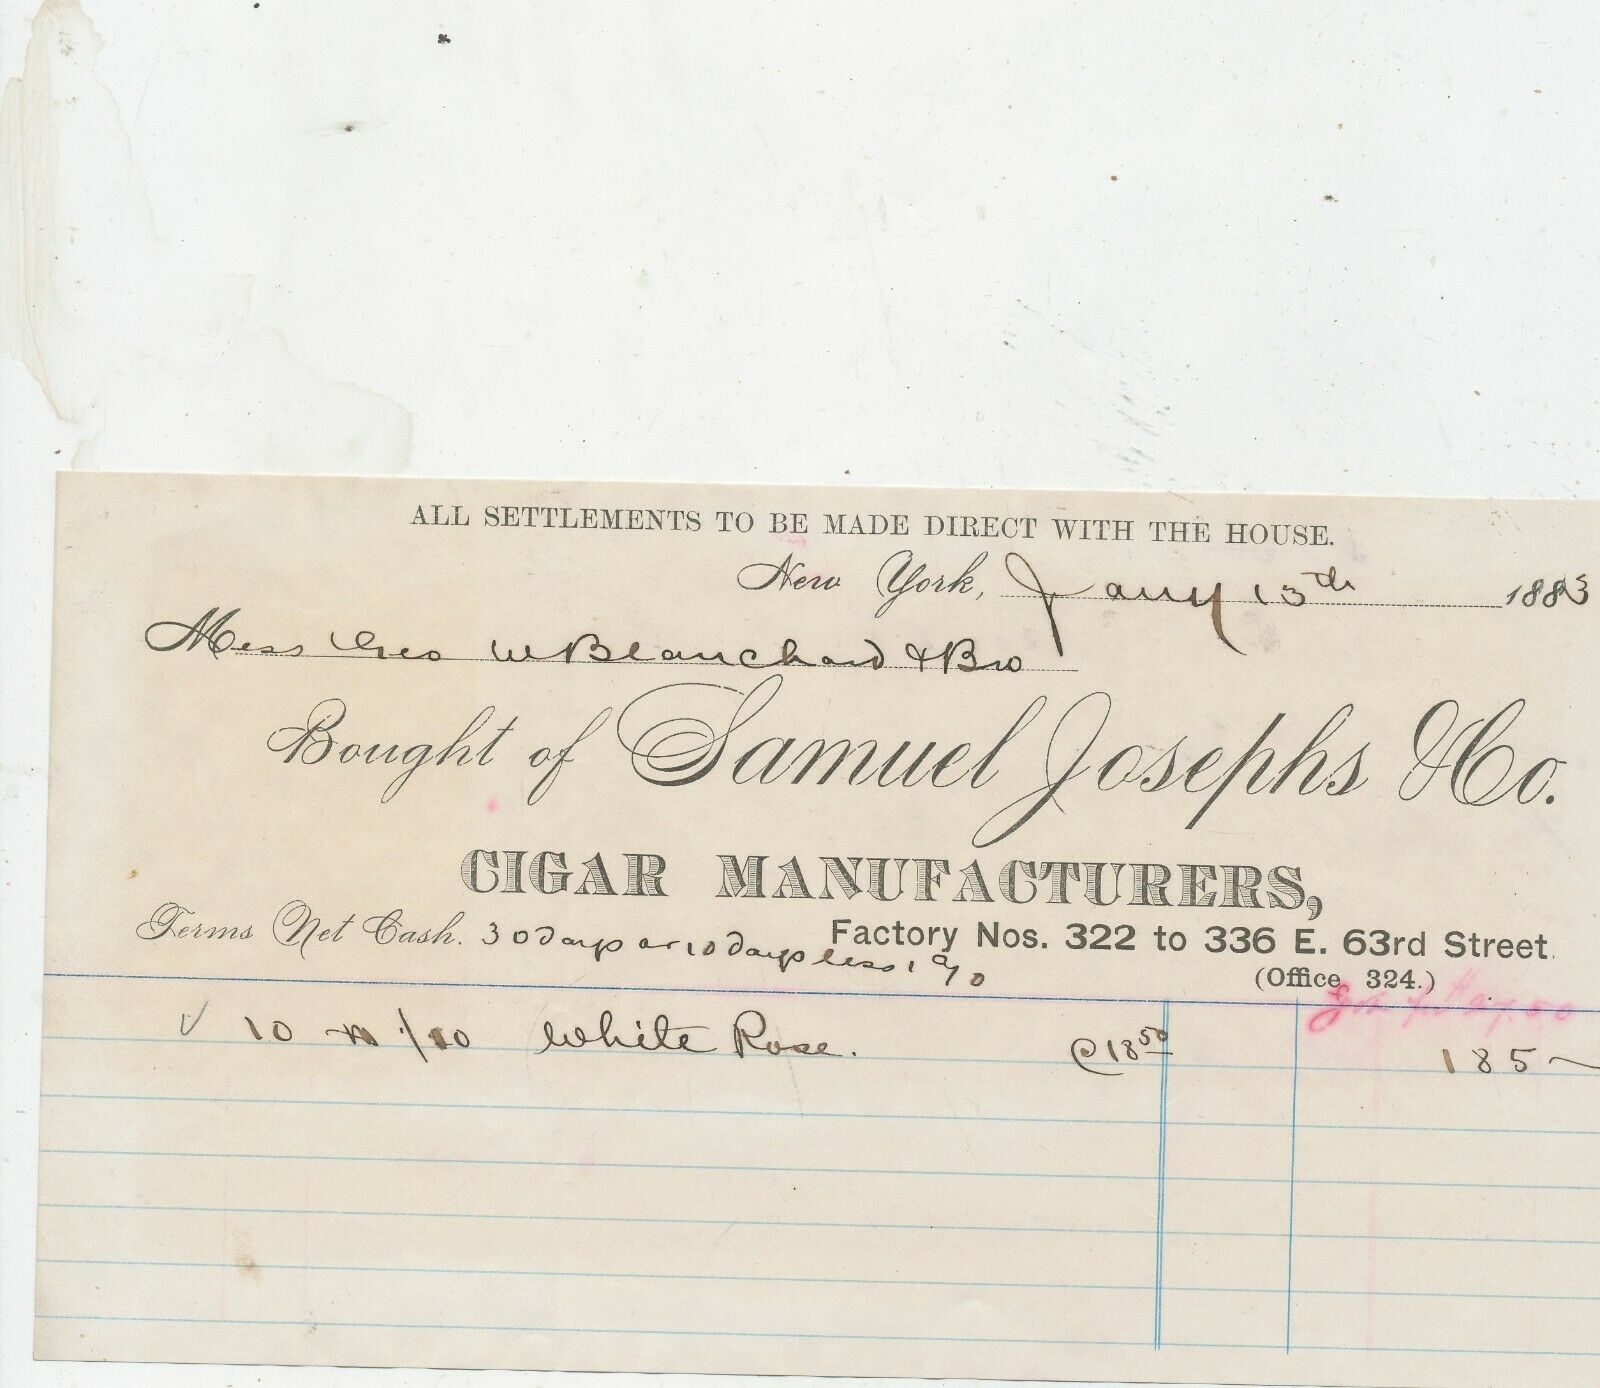 ALL SETTLEMENTS TO BE MADE DIRECT WITH THE HOUSE.
New York, Jany 13th 1883
Mess Geo W Blanchard & Bro
Bought of Samuel Josephs & Co.
CIGAR MANUFACTURERS,
Terms Net Cash. 30 days or 10 days less 1 %
Factory Nos. 322 to 336 E. 63rd Street.
(Office 324.)
✓ 10 m 1/10 White Rose. @ 18 50 185 —